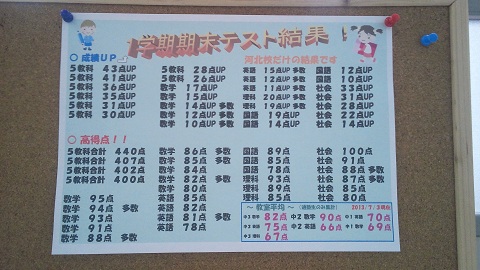 1学期期末テスト結果!
河北校だけの結果です
○ 成績UP
5教科 43点UP 5教科 28点UP 英語 15点UP 多数 国語 12点UP
5教科 41点UP 5教科 26点UP 英語 12点UP 多数 国語 10点UP
5教科 36点UP 数学 17点UP 英語 11点UP 多数 社会 33点UP
5教科 35点UP 数学 15点UP 理科 20点UP 多数 社会 31点UP
5教科 31点UP 数学 14点UP 多数 理科 19点UP 多数 社会 28点UP
5教科 30点UP 数学 12点UP 多数 国語 19点UP 社会 22点UP
数学 10点UP 多数 国語 14点UP 社会 14点UP
○ 高得点!!
5教科合計 440点 数学 86点 多数 国語 89点 社会 100点
5教科合計 407点 数学 85点 多数 国語 85点 社会 91点
5教科合計 402点 数学 84点 国語 78点 社会 88点 多数
5教科合計 400点 数学 82点 多数 理科 93点 社会 87点 多数
数学 80点 理科 89点 社会 85点
数学 95点 英語 85点 理科 84点 社会 80点
数学 94点 多数 英語 82点
数学 93点 英語 81点 多数
数学 91点 英語 78点
数学 88点 多数
~ 教室平均 ~ 2013/7/3現在
中3 数学 82点 中2 数学 90点 中1 英語 70点
中3 英語 75点 中2 英語 66点 中1 数学 69点
中3 理科 67点